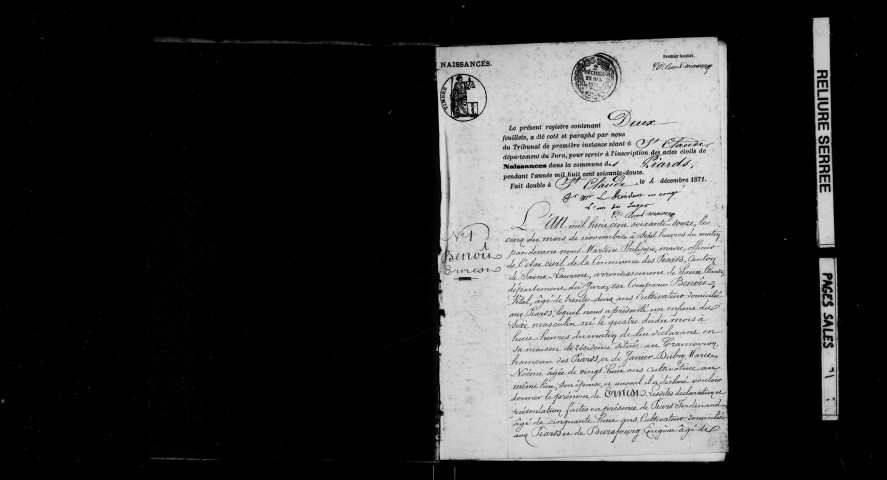 NAISSANCES.
Premier feuillet.
TIMBRE
Le présent registre contenant Deux
feuillets, a été coté et paraphé par nous
du Tribunal de première instance séant à St Claude
département du Jura, pour servir à l'inscription des actes civils de
Naissances dans la commune des Piards,
pendant l'année mil huit cent soixante-douze.
Fait double à St Claude, le 4 décembre 1871.
Pr Mr le Président en congé
L'un des Juges
N° 1
Benoit
Ernest
L'An mil huit cent soixante douze, le
cinq du mois de novembre à sept heures du matin
pardevant nous Martine Philippe, maire, officier
de l'état civil de la Commune des Piards, Canton
de Saint Laurent, arrondissement de Saint Claude
département du Jura, est Comparu Benoit
Vital, âgé de trente deux ans Cultivateur domicilié
aux Piards, lequel nous a présenté un enfant du
sexe masculin né le quatre dudit mois à
huit heures du matin de lui déclarant en
sa maison de résidence située au
hameau des Piards, et de Janier Dubry Marie
Noémi âgée de vingt huit ans cultivatrice au
même lieu, son épouse, et auquel il a déclaré vouloir
donner le prénom de Ernest. Lesdites déclaration et
présentation faites en présence de Piard Ferdinand
âgé de cinquante huit ans Cultivateur domicilié
aux Piards et de Burafourg Eugène âgé de
RELIURE SERREE
PAGES SALES